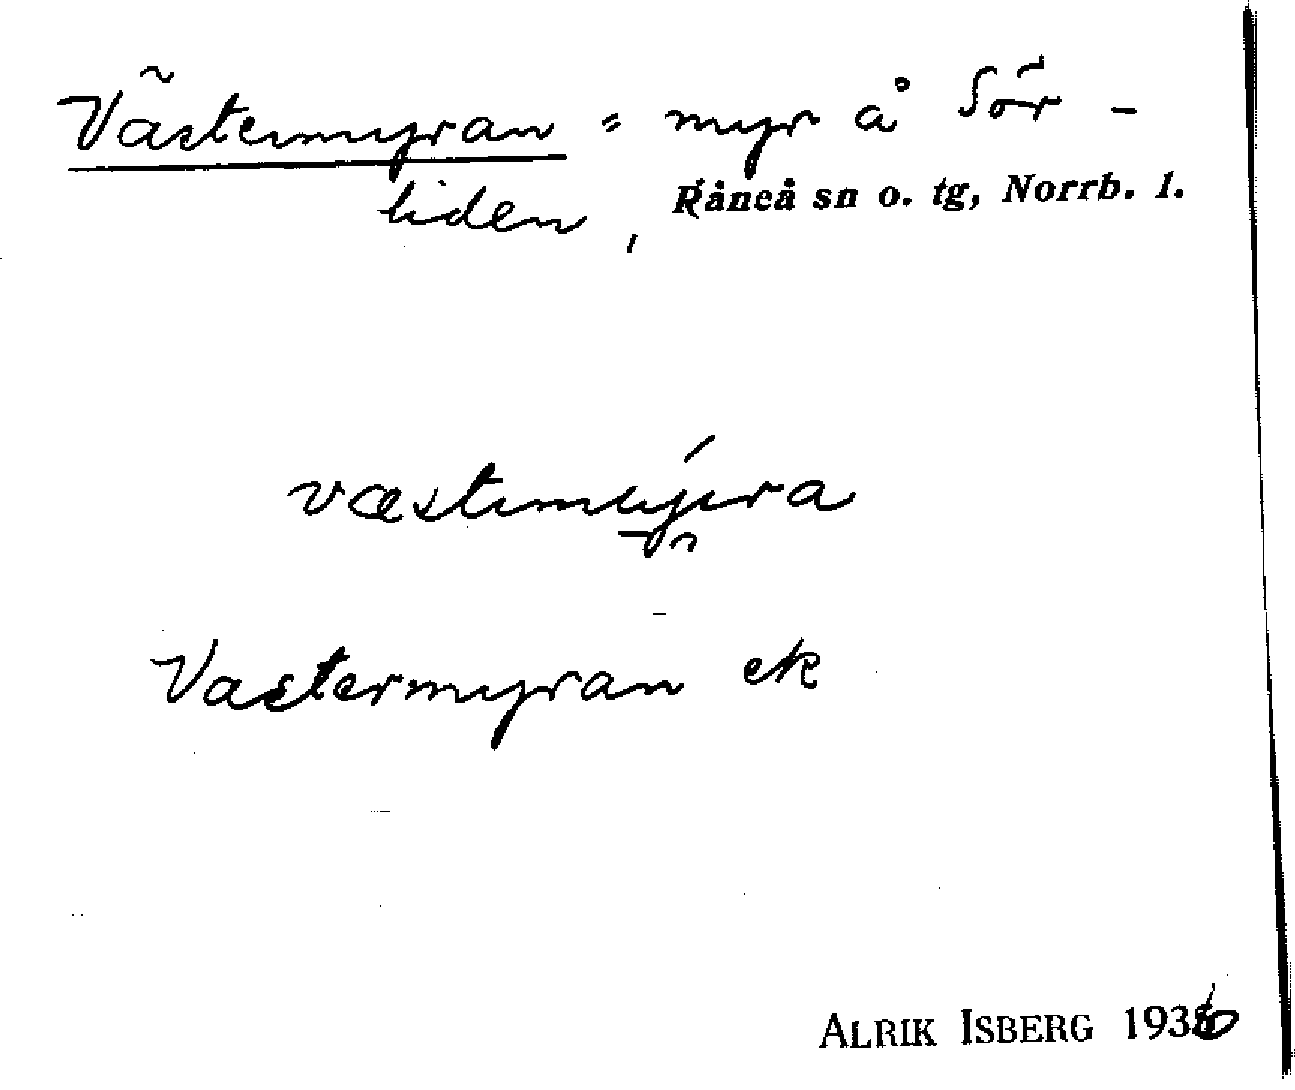 Västermyran = myr å Sör-
liden, Råneå sn o. tg, Norrb. l.
Västermyran ek
ALRIK ISBERG 1936